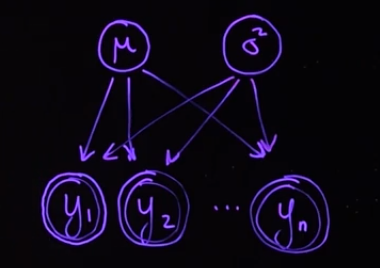 μ σ²
y₁ y₂ ... yₙ